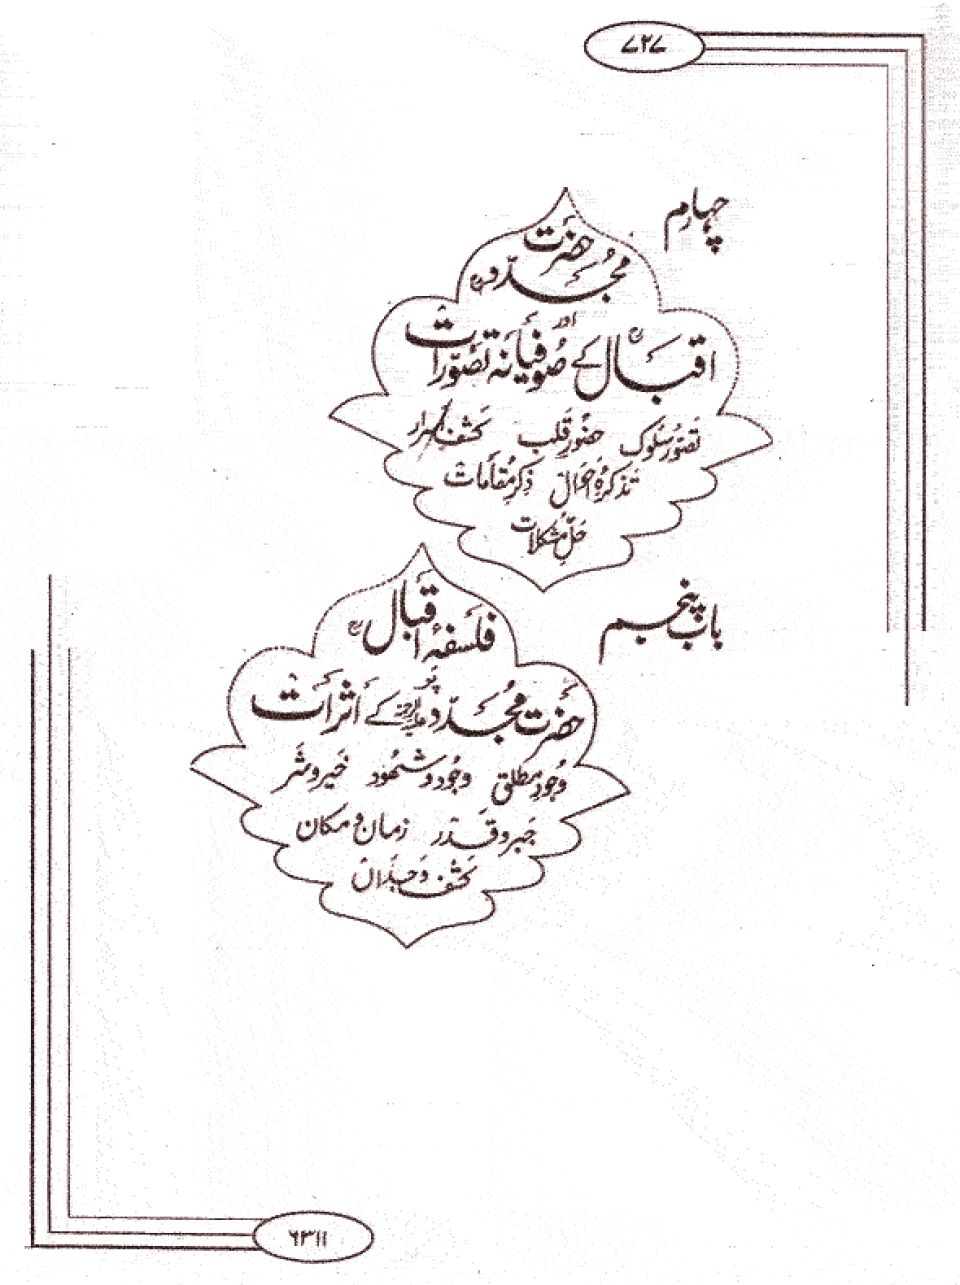 ۷۲۷
چہارم
حضرت
مجدّدؒ
اور
اقبالؒ کے صوفیانہ تصوّرات
تصوّرِ سلوک حضورِ قلب کشفِ اسرار
تذکرۂ احوال ذکرِ مقامات
حلِّ مشکلات
باب پنجم
فلسفۂ اقبالؒ
پر
حضرت مجدّد علیہ الرحمۃ کے اثرات
وجودِ مطلق وجود و شہود خیر و شر
جبر و قدر زمان و مکان
کشف و وجدان
۶۳۱۱